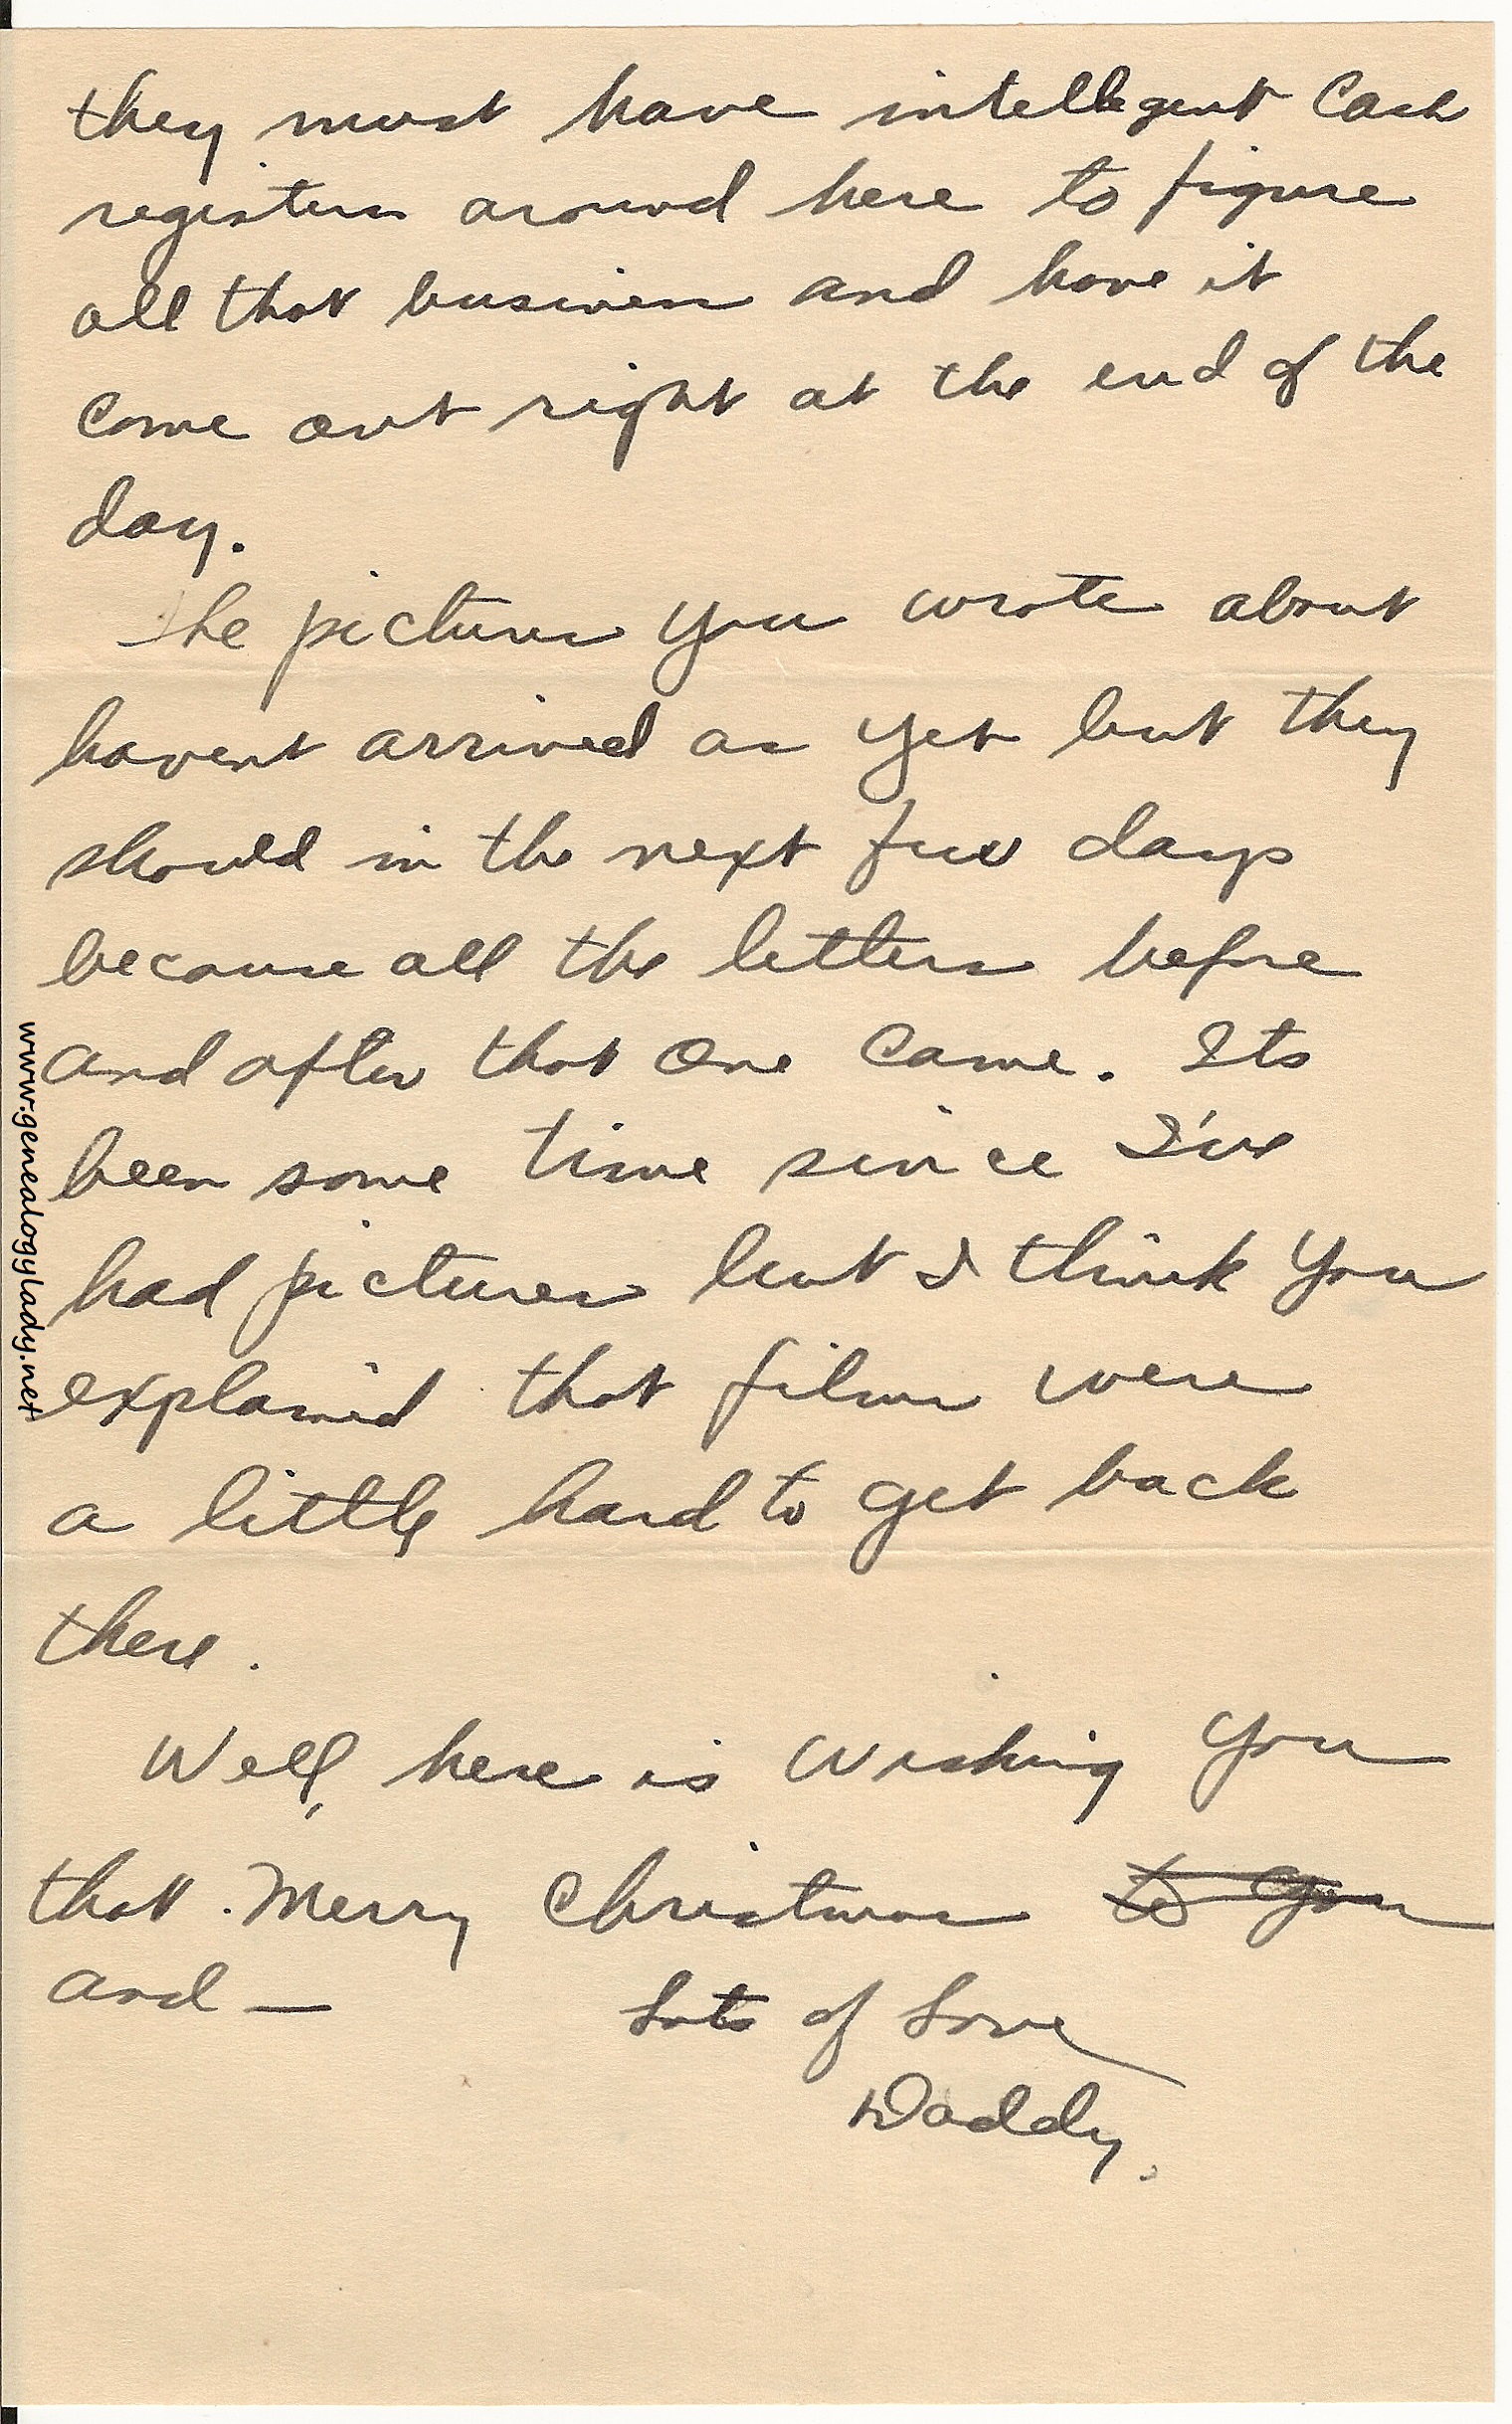 they must have intellegent Cash
registers around here to figure
all that business and have it
come out right at the end of the
day.
The pictures you wrote about
havent arrived as yet but they
should in the next few days
because all the letters before
and after that one came. Its
been some time since I've
had pictures but I think you
explained that films were
a little hard to get back
there.
Well, here is wishing you
that Merry Christmas to you
and —
Lots of Love
Daddy.
www.genealogylady.net